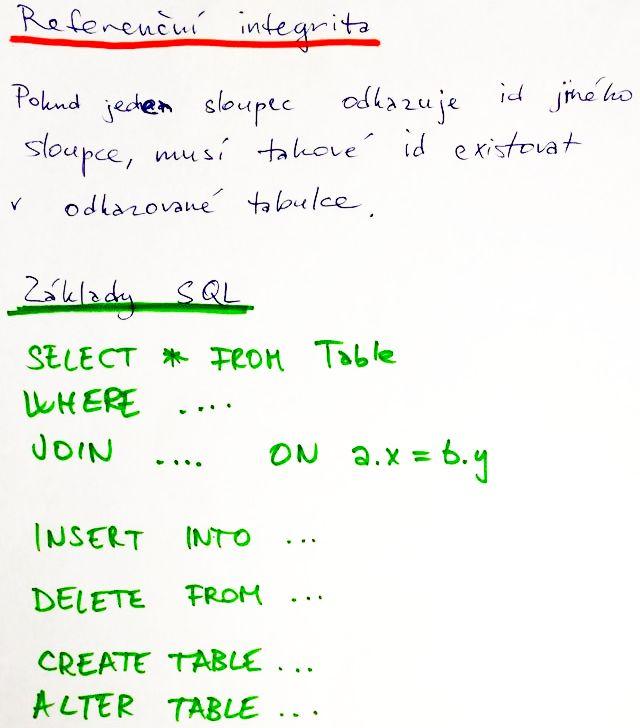 Referenční integrita
Pokud jeden sloupec odkazuje id jiného
sloupce, musí takové id existovat
v odkazované tabulce.
Základy SQL
SELECT * FROM Table
WHERE ....
JOIN .... ON a.x = b.y
INSERT INTO ...
DELETE FROM ...
CREATE TABLE ...
ALTER TABLE ...